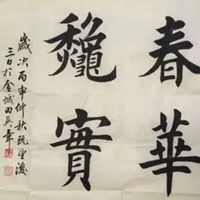 春華
龝實
歲次丙申仲秋既望後
三日於金城田英章